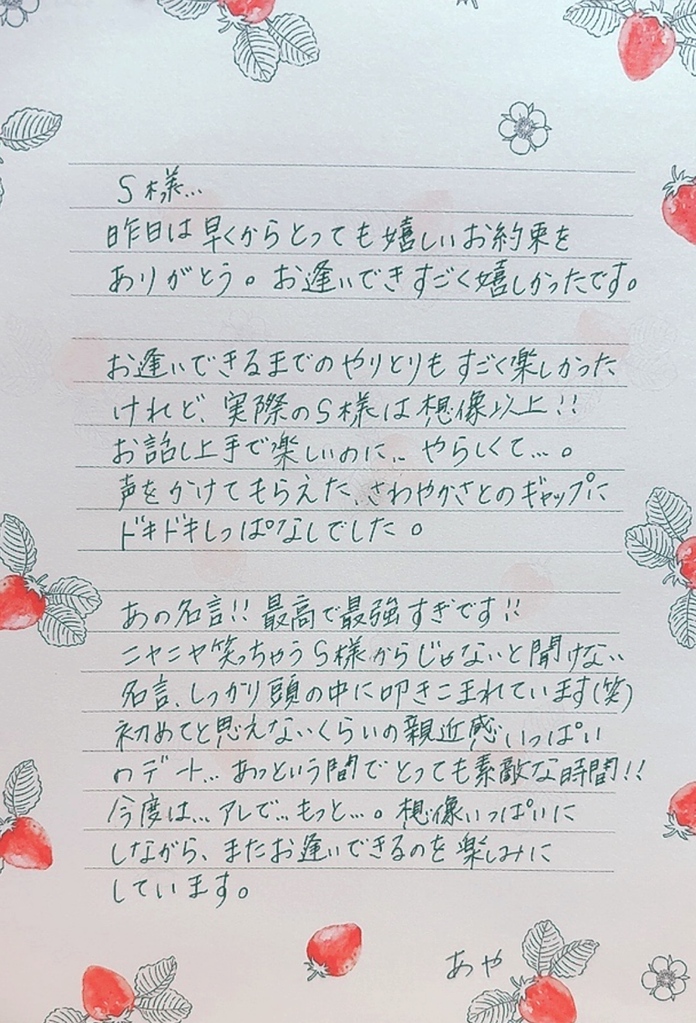 S様…
昨日は早くからとっても嬉しいお約束を
ありがとう。お逢いできすごく嬉しかったです。
お逢いできるまでのやりとりもすごく楽しかった
けれど、実際のS様は想像以上!!
お話し上手で楽しいのに… やらしくて…。
声をかけてもらえた、さわやかさとのギャップに
ドキドキしっぱなしでした。
あの名言!! 最高で最強すぎです!!
ニヤニヤ笑っちゃうS様からじゃないと聞けない
名言、しっかり頭の中に叩きこまれています(笑)
初めてと思えないくらいの親近感いっぱい
のデート… あっという間でとっても素敵な時間!!
今度は… アレで… もっと…。想像いっぱいに
しながら、またお逢いできるのを楽しみに
しています。
あや